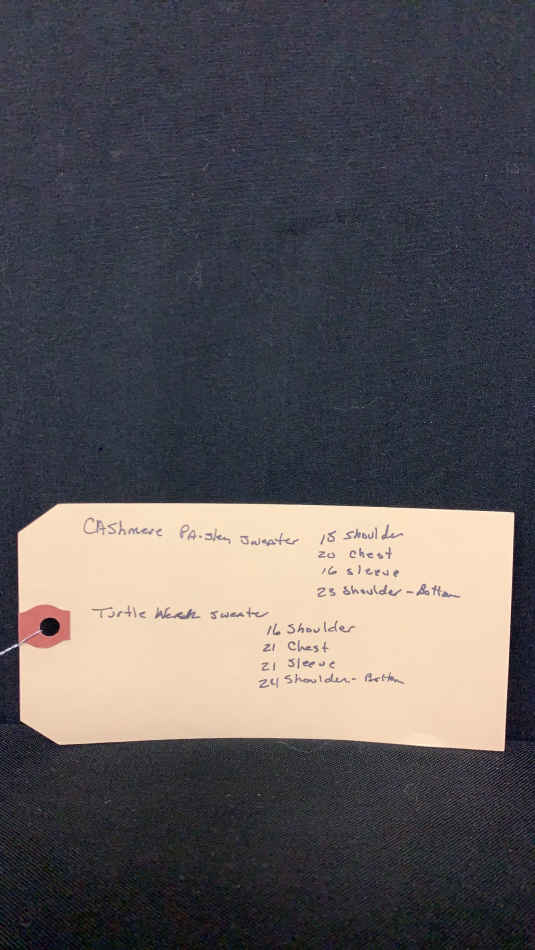 CAShmere PAisley Sweater 18 Shoulder
20 chest
16 sleeve
23 Shoulder - Bottom
Turtle Neck sweater
16 Shoulder
21 Chest
21 Sleeve
24 Shoulder - Bottom